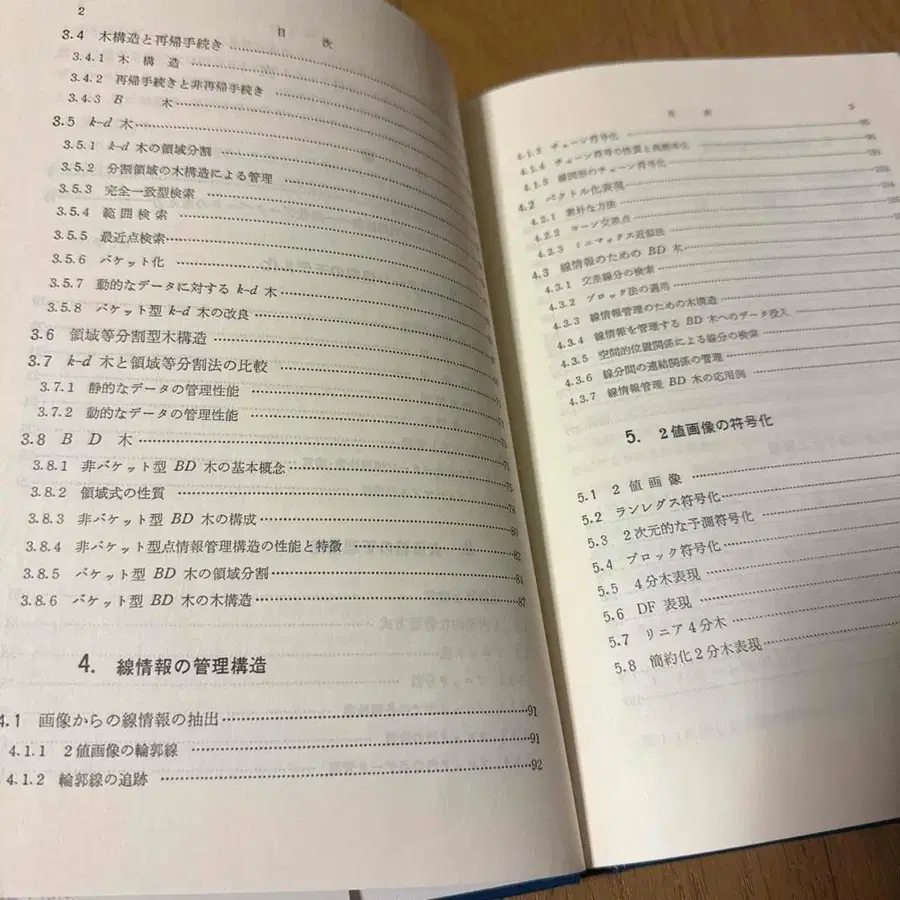 2
目 次
3.4 木構造と再帰手続き
3.4.1 木構造
3.4.2 再帰手続きと非再帰手続き
3.4.3 B 木
3.5 k-d 木
3.5.1 k-d 木の領域分割
3.5.2 分割領域の木構造による管理
3.5.3 完全一致型検索
3.5.4 範囲検索
3.5.5 最近点検索
3.5.6 バケット化
3.5.7 動的なデータに対する k-d 木
3.5.8 バケット型 k-d 木の改良
3.6 領域等分割型木構造
3.7 k-d 木と領域等分割法の比較
3.7.1 静的なデータの管理性能
3.7.2 動的なデータの管理性能
3.8 B D 木
3.8.1 非バケット型 BD 木の基本概念 75
3.8.2 領域式の性質 78
3.8.3 非バケット型 BD 木の構成 80
3.8.4 非バケット型点情報管理構造の性能と特徴 82
3.8.5 バケット型 BD 木の領域分割 84
3.8.6 バケット型 BD 木の木構造 87
4. 線情報の管理構造
4.1 画像からの線情報の抽出 91
4.1.1 2値画像の輪郭線 91
4.1.2 輪郭線の追跡 92
目 次 3
4.1.3 チェーン符号化 95
4.1.4 チェーン符号の性質と
4.1.5 線図形のチェーン符号化
4.2 ベクトル化表現
4.2.1 素朴な方法
4.2.2 コーン交差点
4.2.3 ミニマックス近似法
4.3 線情報のための BD 木
4.3.1 交差線分の検索
4.3.2 ブロック法の適用
4.3.3 線情報管理のための木構造
4.3.4 線情報を管理する BD 木へのデータ投入
4.3.5 空間的位置関係による線分の検索
4.3.6 線分間の連結関係の管理
4.3.7 線情報管理 BD 木の応用例
5. 2値画像の符号化
5.1 2値画像
5.2 ランレングス符号化
5.3 2次元的な予測符号化
5.4 ブロック符号化
5.5 4分木表現
5.6 DF 表現
5.7 リニア4分木
5.8 簡約化2分木表現